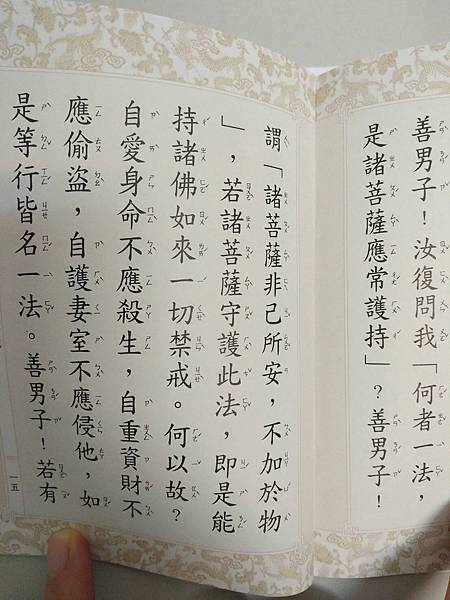 善男子！汝復問我「何者一法，
是諸菩薩應常護持」？善男子！
謂「諸菩薩非己所安，不加於物
」，若諸菩薩守護此法，即是能
持諸佛如來一切禁戒。何以故？
自愛身命不應殺生，自重資財不
應偷盜，自護妻室不應侵他，如
是等行皆名一法。善男子！若有
一五